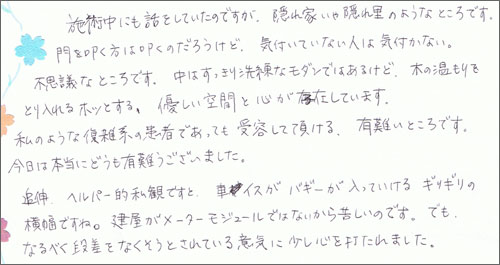 施術中にも話をしていたのですが、隠れ家いや隠れ里のようなところです。
門を叩く方は叩くのだろうけど、気付いていない人は気付かない。
不思議なところです。中はすっきり洗練なモダンではあるけど、木の温もりを
とり入れるホッとする、優しい空間と心が存在しています。
私のような複雑系の患者であっても受容して頂ける、有難いところです。
今日は本当にどうも有難うございました。
追伸、ヘルパー的私観ですと、車イスがバギーが入っていける ギリギリの
横幅ですね。建屋がメーターモジュールではないから苦しいのです。でも、
なるべく段差をなくそうとされている意気に少し心を打たれました。